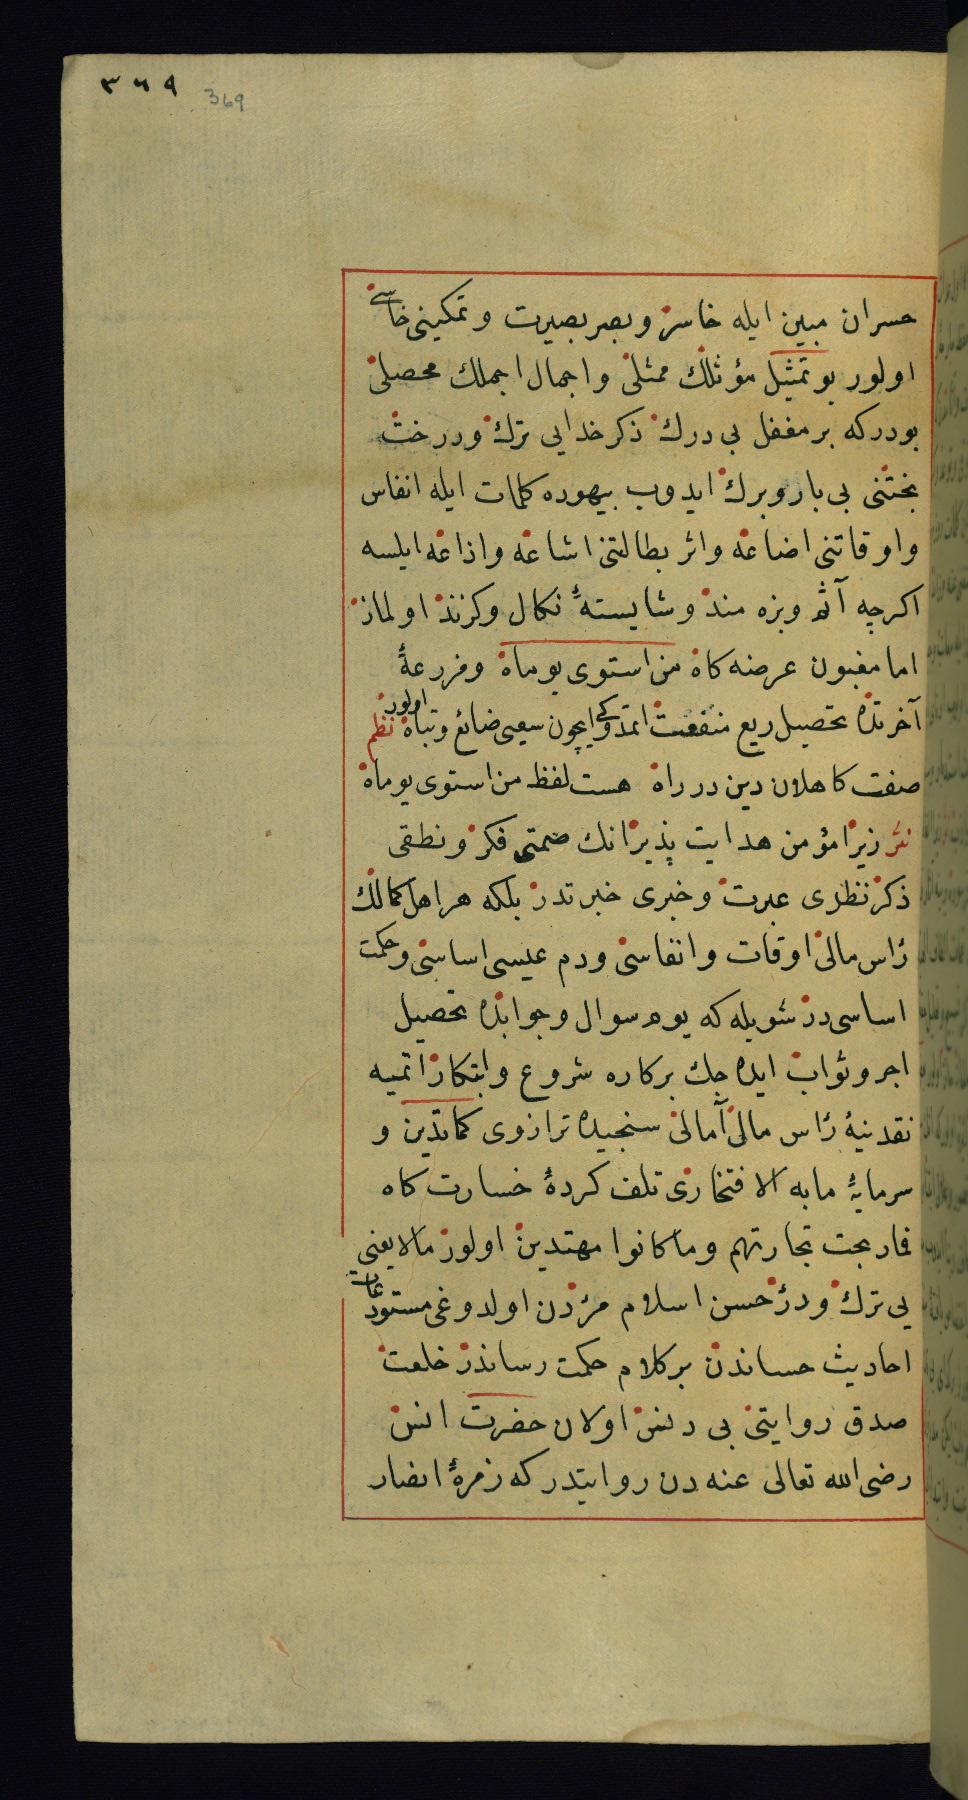 ٣٦٩ 369
حسران مبين ايله خاسر و بصر بصيرت و تمكينى خاسئ
اولور بو تمثيل مؤثلك ممثلى و اجمال اجملك محصلى
بودركه بر مغفل بى درك ذكر خدايى ترك و درخت
بختنى بى بار و برك ايدوب بيهوده كلمات ايله انفاس
و اوقاتنى اضاعه و اثر بطالتنى اشاعه و اذاعه ايلسه
اكرچه آثم و بزه مند و شايستهٔ نكال و كزند اولماز
اما مغبون عرضه كاه من استوى يوماه و مزرعهٔ
آخرتده تحصيل ريع منفعت اتمدوكى ايچون سعيى ضائع و تباه اولور نظم
صفت كاهلان دين در راه هست لفظ من استوى يوماه
نثر زيرا مؤمن هدايت پذيرانك ضمتى فكر و نطقى
ذكر نظرى عبرت و خبرى خبرتدر بلكه هر اهل كمالك
رأس مالى اوقات و انفاسى و دم عيسى اساسى و حكمت
اساسى در شويله كه يوم سوال و جوابده تحصيل
اجر و ثواب ايده جك بر كاره شروع و ابتكار اتميه
نقدينهٔ رأس مالى آمالى سنجيده ترازوى كماتدين و
سرمايهٔ مابه الافتخارى تلف كردهٔ خسارت كاه
فما ربحت تجارتهم وما كانوا مهتدين اولور مالا يعنى
يى ترك و در حسن اسلام مردن اولدوغى مستودعات
احاديث حساندن بر كلام حكمت رساندر خلعت
صدق روايتى بى دنس اولان حضرت انس
رضى الله تعالى عنه دن روايتدر كه زمرهٔ انصار